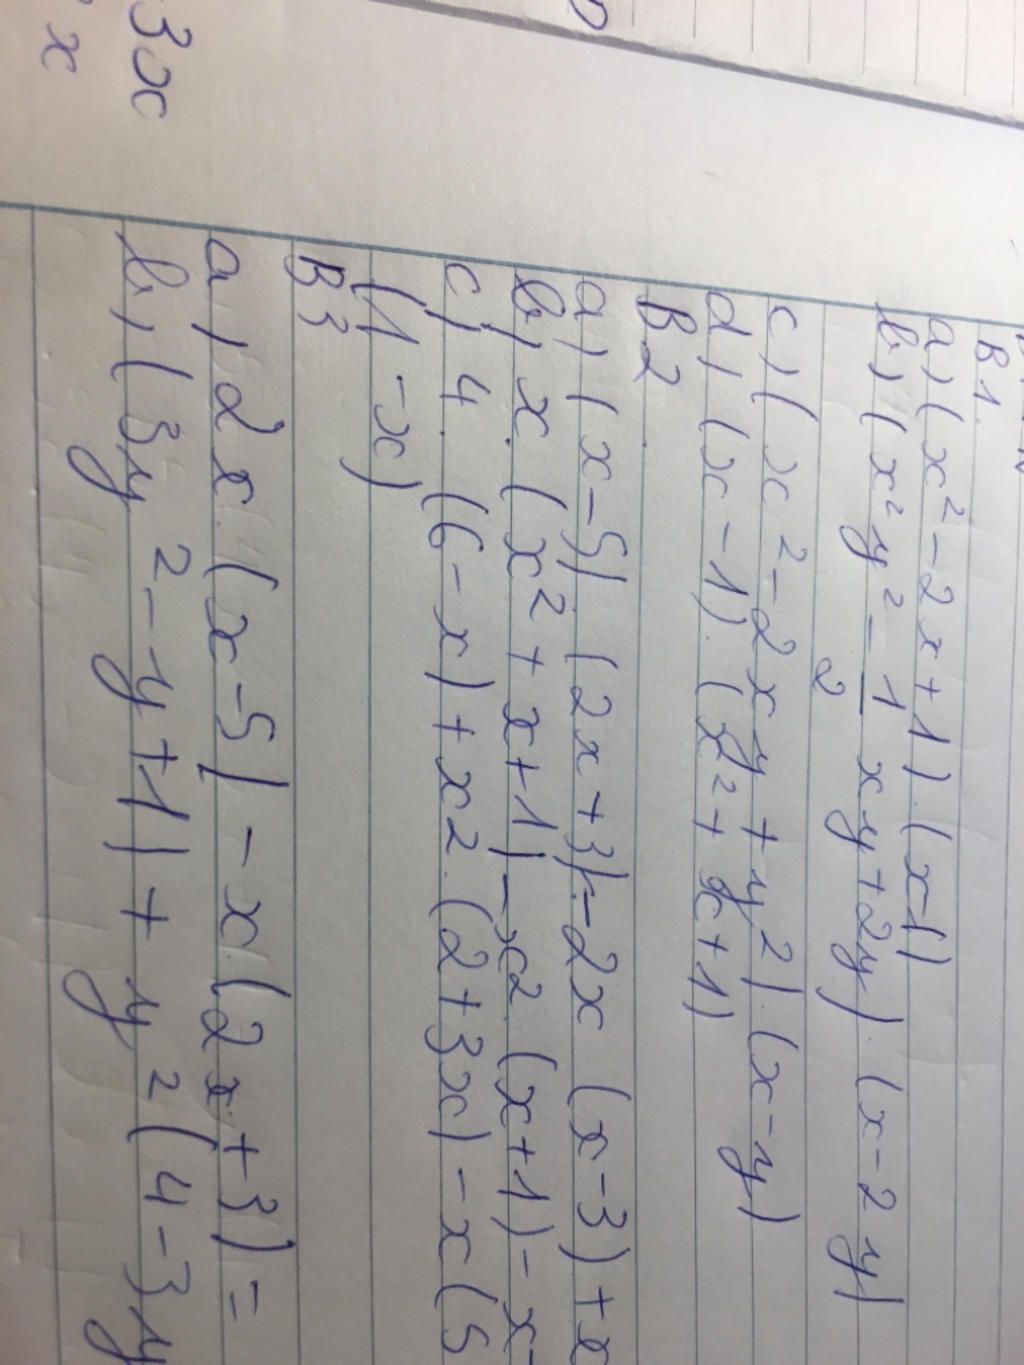 3x
x
B1.
a, (x² - 2x + 1).(x-1)
b, (x²y² - 1/2 xy + 2y).(x - 2y)
c, (x² - 2xy + y²).(x - y)
d, (x - 1).(x² + x + 1)
B2.
a, (x - 5).(2x + 3) - 2x (x - 3) + x
b, x.(x² + x + 1) - x².(x + 1) - x
c, 4.(6 - x) + x².(2 + 3x) - x(5
(1 - x)
B3
a, 2x.(x - 5) - x(2x + 3) =
b, (3y² - y + 1) + y²(4 - 3y